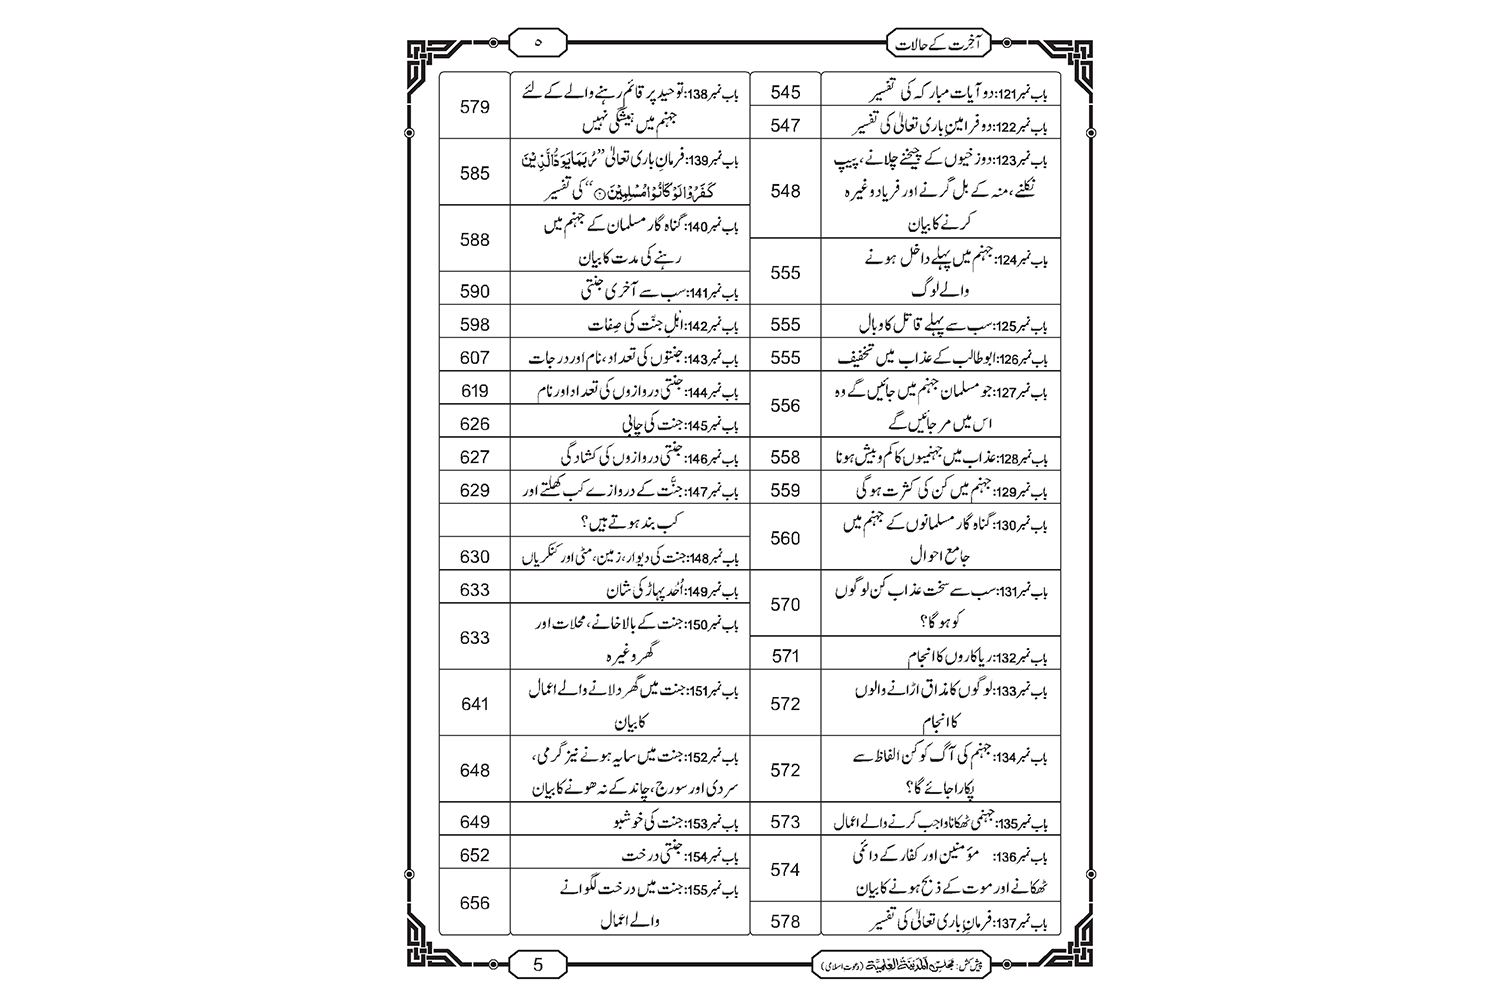 آخرت کے حالات
۵
باب نمبر121: دو آیات مبارکہ کی تفسیر 545
باب نمبر122: دو فرامینِ باری تعالیٰ کی تفسیر 547
باب نمبر123: دوزخیوں کے چیخنے چلانے، پیپ
نکلنے، منہ کے بل گرنے اور فریاد وغیرہ 548
کرنے کا بیان
باب نمبر124: جہنم میں پہلے داخل ہونے 555
والے لوگ
باب نمبر125: سب سے پہلے قاتل کا وبال 555
باب نمبر126: ابوطالب کے عذاب میں تخفیف 555
باب نمبر127: جو مسلمان جہنم میں جائیں گے وہ 556
اس میں مر جائیں گے
باب نمبر128: عذاب میں جہنمیوں کا کم وبیش ہونا 558
باب نمبر129: جہنم میں کن کی کثرت ہوگی 559
باب نمبر130: گناہ گار مسلمانوں کے جہنم میں 560
جامع احوال
باب نمبر131: سب سے سخت عذاب کن لوگوں 570
کو ہوگا؟
باب نمبر132: ریاکاروں کا انجام 571
باب نمبر133: لوگوں کا مذاق اڑانے والوں 572
کا انجام
باب نمبر134: جہنم کی آگ کو کن الفاظ سے 572
پکارا جائے گا؟
باب نمبر135: جہنمی ٹھکانا واجب کرنے والے اعمال 573
باب نمبر136: مؤمنین اور کفار کے دائمی 574
ٹھکانے اور موت کے ذبح ہونے کا بیان
باب نمبر137: فرمانِ باری تعالیٰ کی تفسیر 578
باب نمبر138: توحید پر قائم رہنے والے کے لئے 579
جہنم میں ہیشگی نہیں
باب نمبر139: فرمانِ باری تعالیٰ ”رُبَمَا یَوَدُّ الَّذِیْنَ 585
كَفَرُوْا لَوْ كَانُوْا مُسْلِمِیْنَ۝۲“ کی تفسیر
باب نمبر140: گناہ گار مسلمان کے جہنم میں 588
رہنے کی مدت کا بیان
باب نمبر141: سب سے آخری جنتی 590
باب نمبر142: اہلِ جنّت کی صِفات 598
باب نمبر143: جنتوں کی تعداد، نام اور درجات 607
باب نمبر144: جنتی دروازوں کی تعداد اور نام 619
باب نمبر145: جنت کی چابی 626
باب نمبر146: جنتی دروازوں کی کشادگی 627
باب نمبر147: جنَّت کے دروازے کب کھلتے اور 629
کب بند ہوتے ہیں؟
باب نمبر148: جنت کی دیوار، زمین، مٹی اور کنکریاں 630
باب نمبر149: اُحُد پہاڑ کی شان 633
باب نمبر150: جنت کے بالاخانے، محلات اور 633
گھر وغیرہ
باب نمبر151: جنت میں گھر دلانے والے اعمال 641
کا بیان
باب نمبر152: جنت میں سایہ ہونے نیز گرمی، 648
سردی اور سورج، چاند کے نہ ہونے کا بیان
باب نمبر153: جنت کی خوشبو 649
باب نمبر154: جنتی درخت 652
باب نمبر155: جنت میں درخت لگوانے 656
والے اعمال
پیش کش: مجلس المدینۃ العلمیۃ (دعوت اسلامی)
5